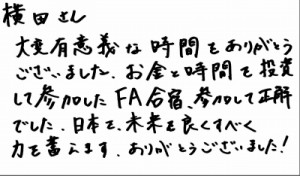 横田さん
大変有意義な時間をありがとう
ございました。お金と時間を投資
して参加したFA合宿、参加して正解
でした。日本を、未来を良くすべく
力を蓄えます。ありがとうございました!